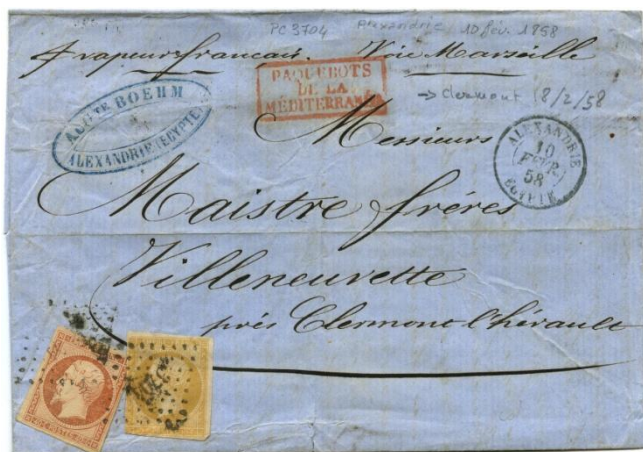 PC 3704 Alexandrie 10 fév. 1858
p vapeur français. Voie Marseille
PAQUEBOTS
DE LA
MÉDITERRANÉE
→ Clermont 18/2/58
AUGTE BOEHM
ALEXANDRIE (EGYPTE)
ALEXANDRIE
10
FEVR
58
EGYPTE
Messieurs
Maistre frères
Villeneuvette
près Clermont l'hérault